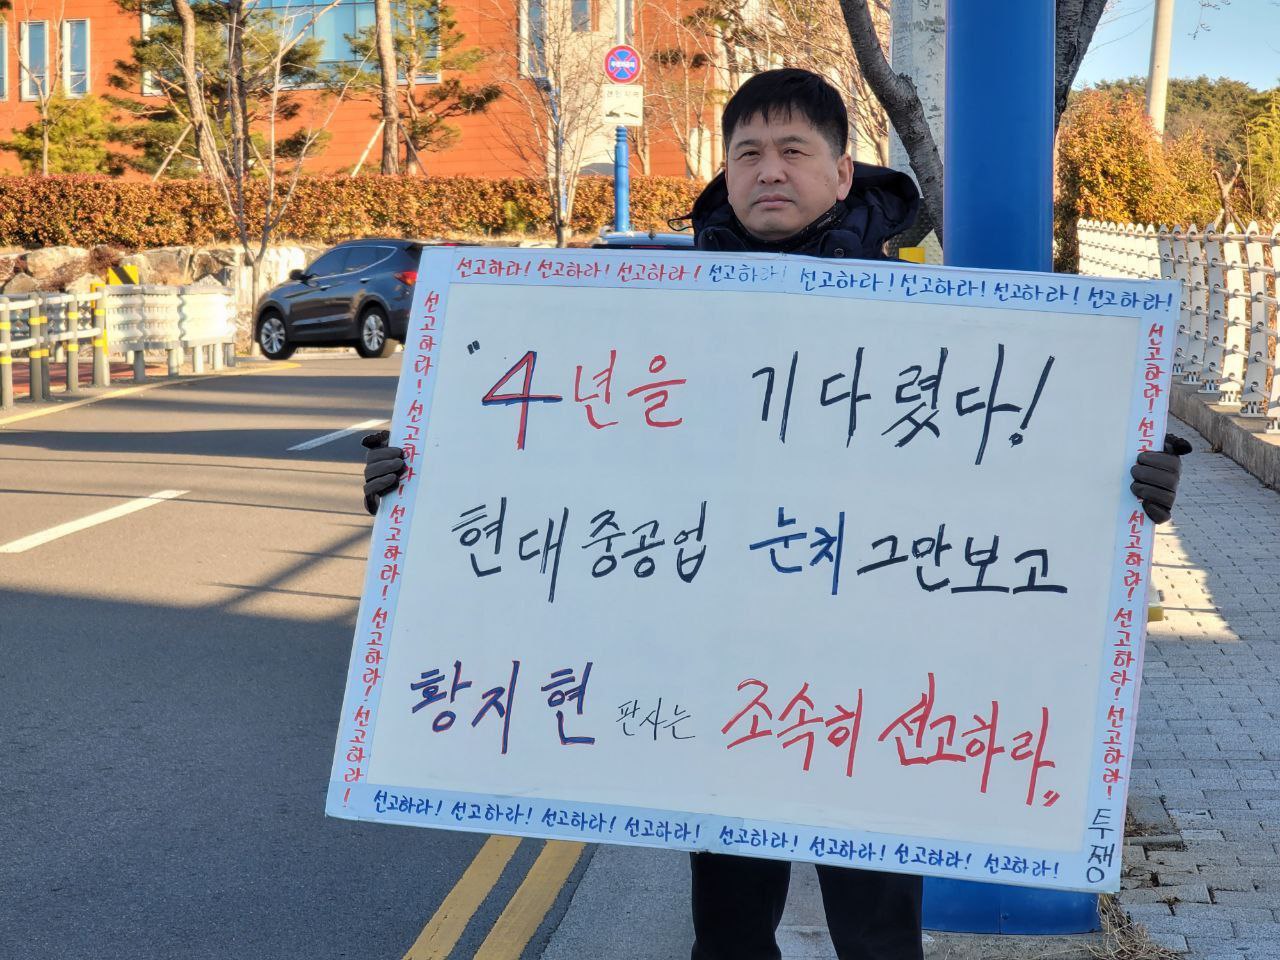 선고하라! 선고하라! 선고하라! 선고하라! 선고하라! 선고하라! 선고하라! 선고하라!
"4년을 기다렸다!
현대중공업 눈치 그만보고
황지현 판사는 조속히 선고하라"
선고하라! 선고하라! 선고하라! 선고하라! 선고하라!
선고하라! 선고하라! 선고하라! 선고하라! 선고하라!
선고하라! 선고하라! 선고하라! 선고하라! 선고하라! 선고하라! 선고하라! 선고하라!
투쟁
견인지역